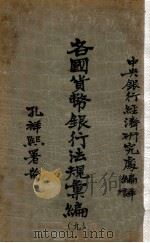 中央銀行經濟研究處編譯
各國貨幣銀行法規彙編
(九)
孔祥熙署耑